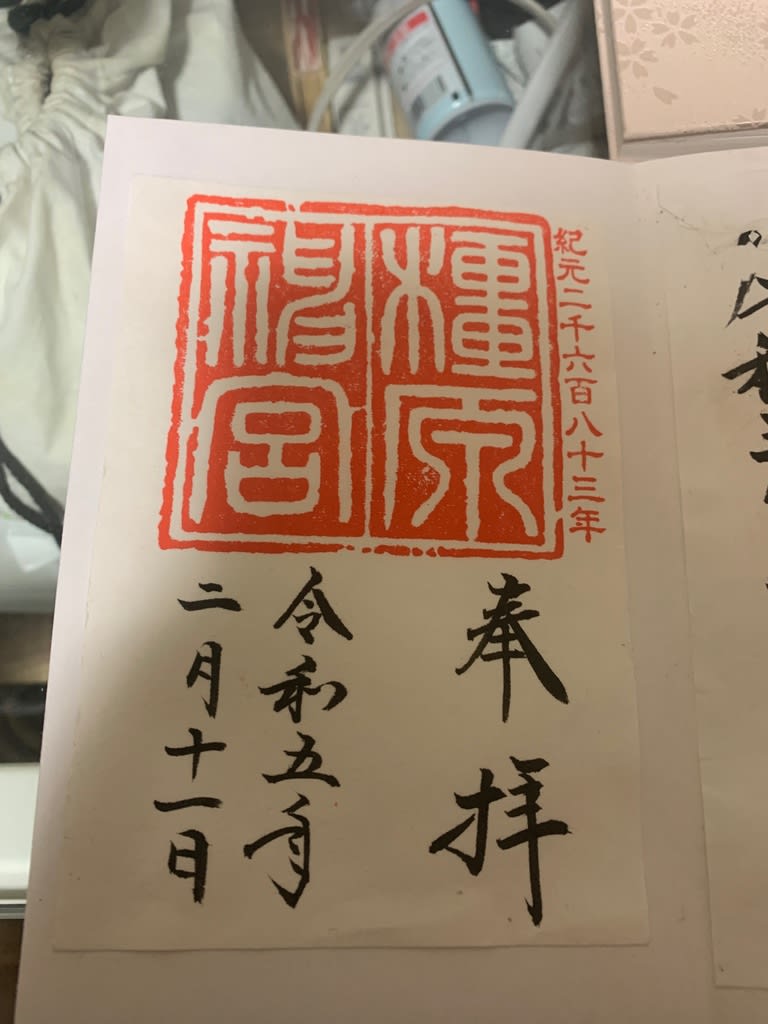 紀元二千六百八十三年
橿原
神宮
奉拝
令和五年
二月十一日